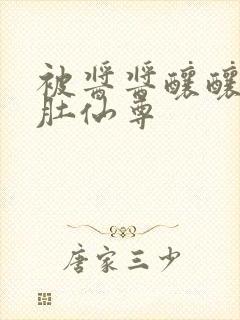 被酱酱酿酿
肚仙尊
唐家三少